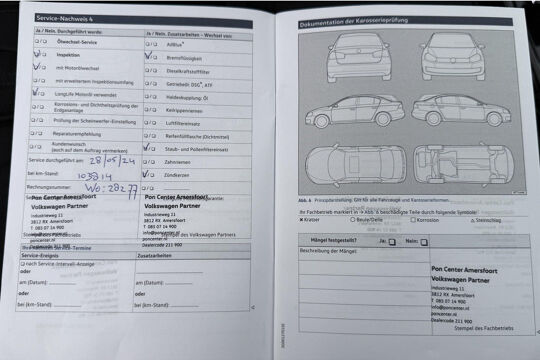 Service-Nachweis 4
Ja / Nein. Durchgeführt wurde:
Ölwechsel-Service
Inspektion
mit Motorölwechsel
mit erweitertem Inspektionsumfang
LongLife Motoröl verwendet
Korrosions- und Dichtheitsprüfung der
Erdgasanlage
Prüfung der Scheinwerfer-Einstellung
Reparaturempfehlung
Kundenwunsch
(auch auf dem Auftrag vermerken)
Service durchgeführt am: 28/05/24
bei km-Stand: 103814
Rechnungsnummer: Wo: 28277
Pon Center Amersfoort
Volkswagen Partner
Industrieweg 11
3812 RX Amersfoort
T 085 07 14 900
info@poncenter.nl
poncenter.nl
Dealercode 211 900
Ja / Nein. Zusatzarbeiten - Wechsel von:
AdBlue®
Bremsflüssigkeit
Dieselkraftstofffilter
Getriebeöl: DSG®, ATF
Haldexkupplung: Öl
Keilrippenriemen
Luftfiltereinsatz
Reifenfüllflasche (Dichtmittel)
Staub- und Pollenfiltereinsatz
Zahnriemen
Zündkerzen
Pon Center Amersfoort
Volkswagen Partner
Industrieweg 11
3812 RX Amersfoort
T 085 07 14 900
info@poncenter.nl
poncenter.nl
Dealercode 211 900
Stempel des Volkswagen Partners
Service-Termine
Service-Ereignis
Zusatzarbeiten
nach Service-Intervall-Anzeige
oder
oder
am (Datum):
am (Datum):
oder
oder
bei (km-Stand):
bei (km-Stand):
Dokumentation der Karosserieprüfung
Abb. 6 Prinzipdarstellung: Gilt für alle Fahrzeuge und Karosserieformen.
Ihr Fachbetrieb markiert in → Abb. 6 beschädigte Teile durch folgende Symbole:
Kratzer
Beule/Delle
Korrosion
Steinschlag
Mängel festgestellt?
Ja:
Nein:
Beschreibung der Mängel:
Pon Center Amersfoort
Volkswagen Partner
Industrieweg 11
3812 RX Amersfoort
T 085 07 14 900
info@poncenter.nl
poncenter.nl
Dealercode 211 900
Stempel des Fachbetriebs